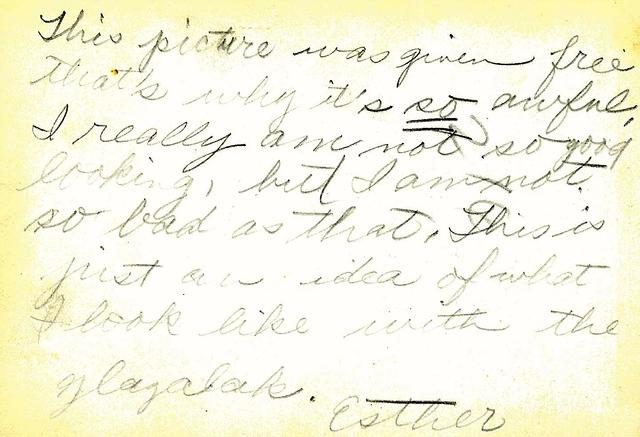 This picture was given free
that's why it's so awful,
I really am not so good
looking, but I am not
so bad as that. This is
just an idea of what
I look like with the
Esther